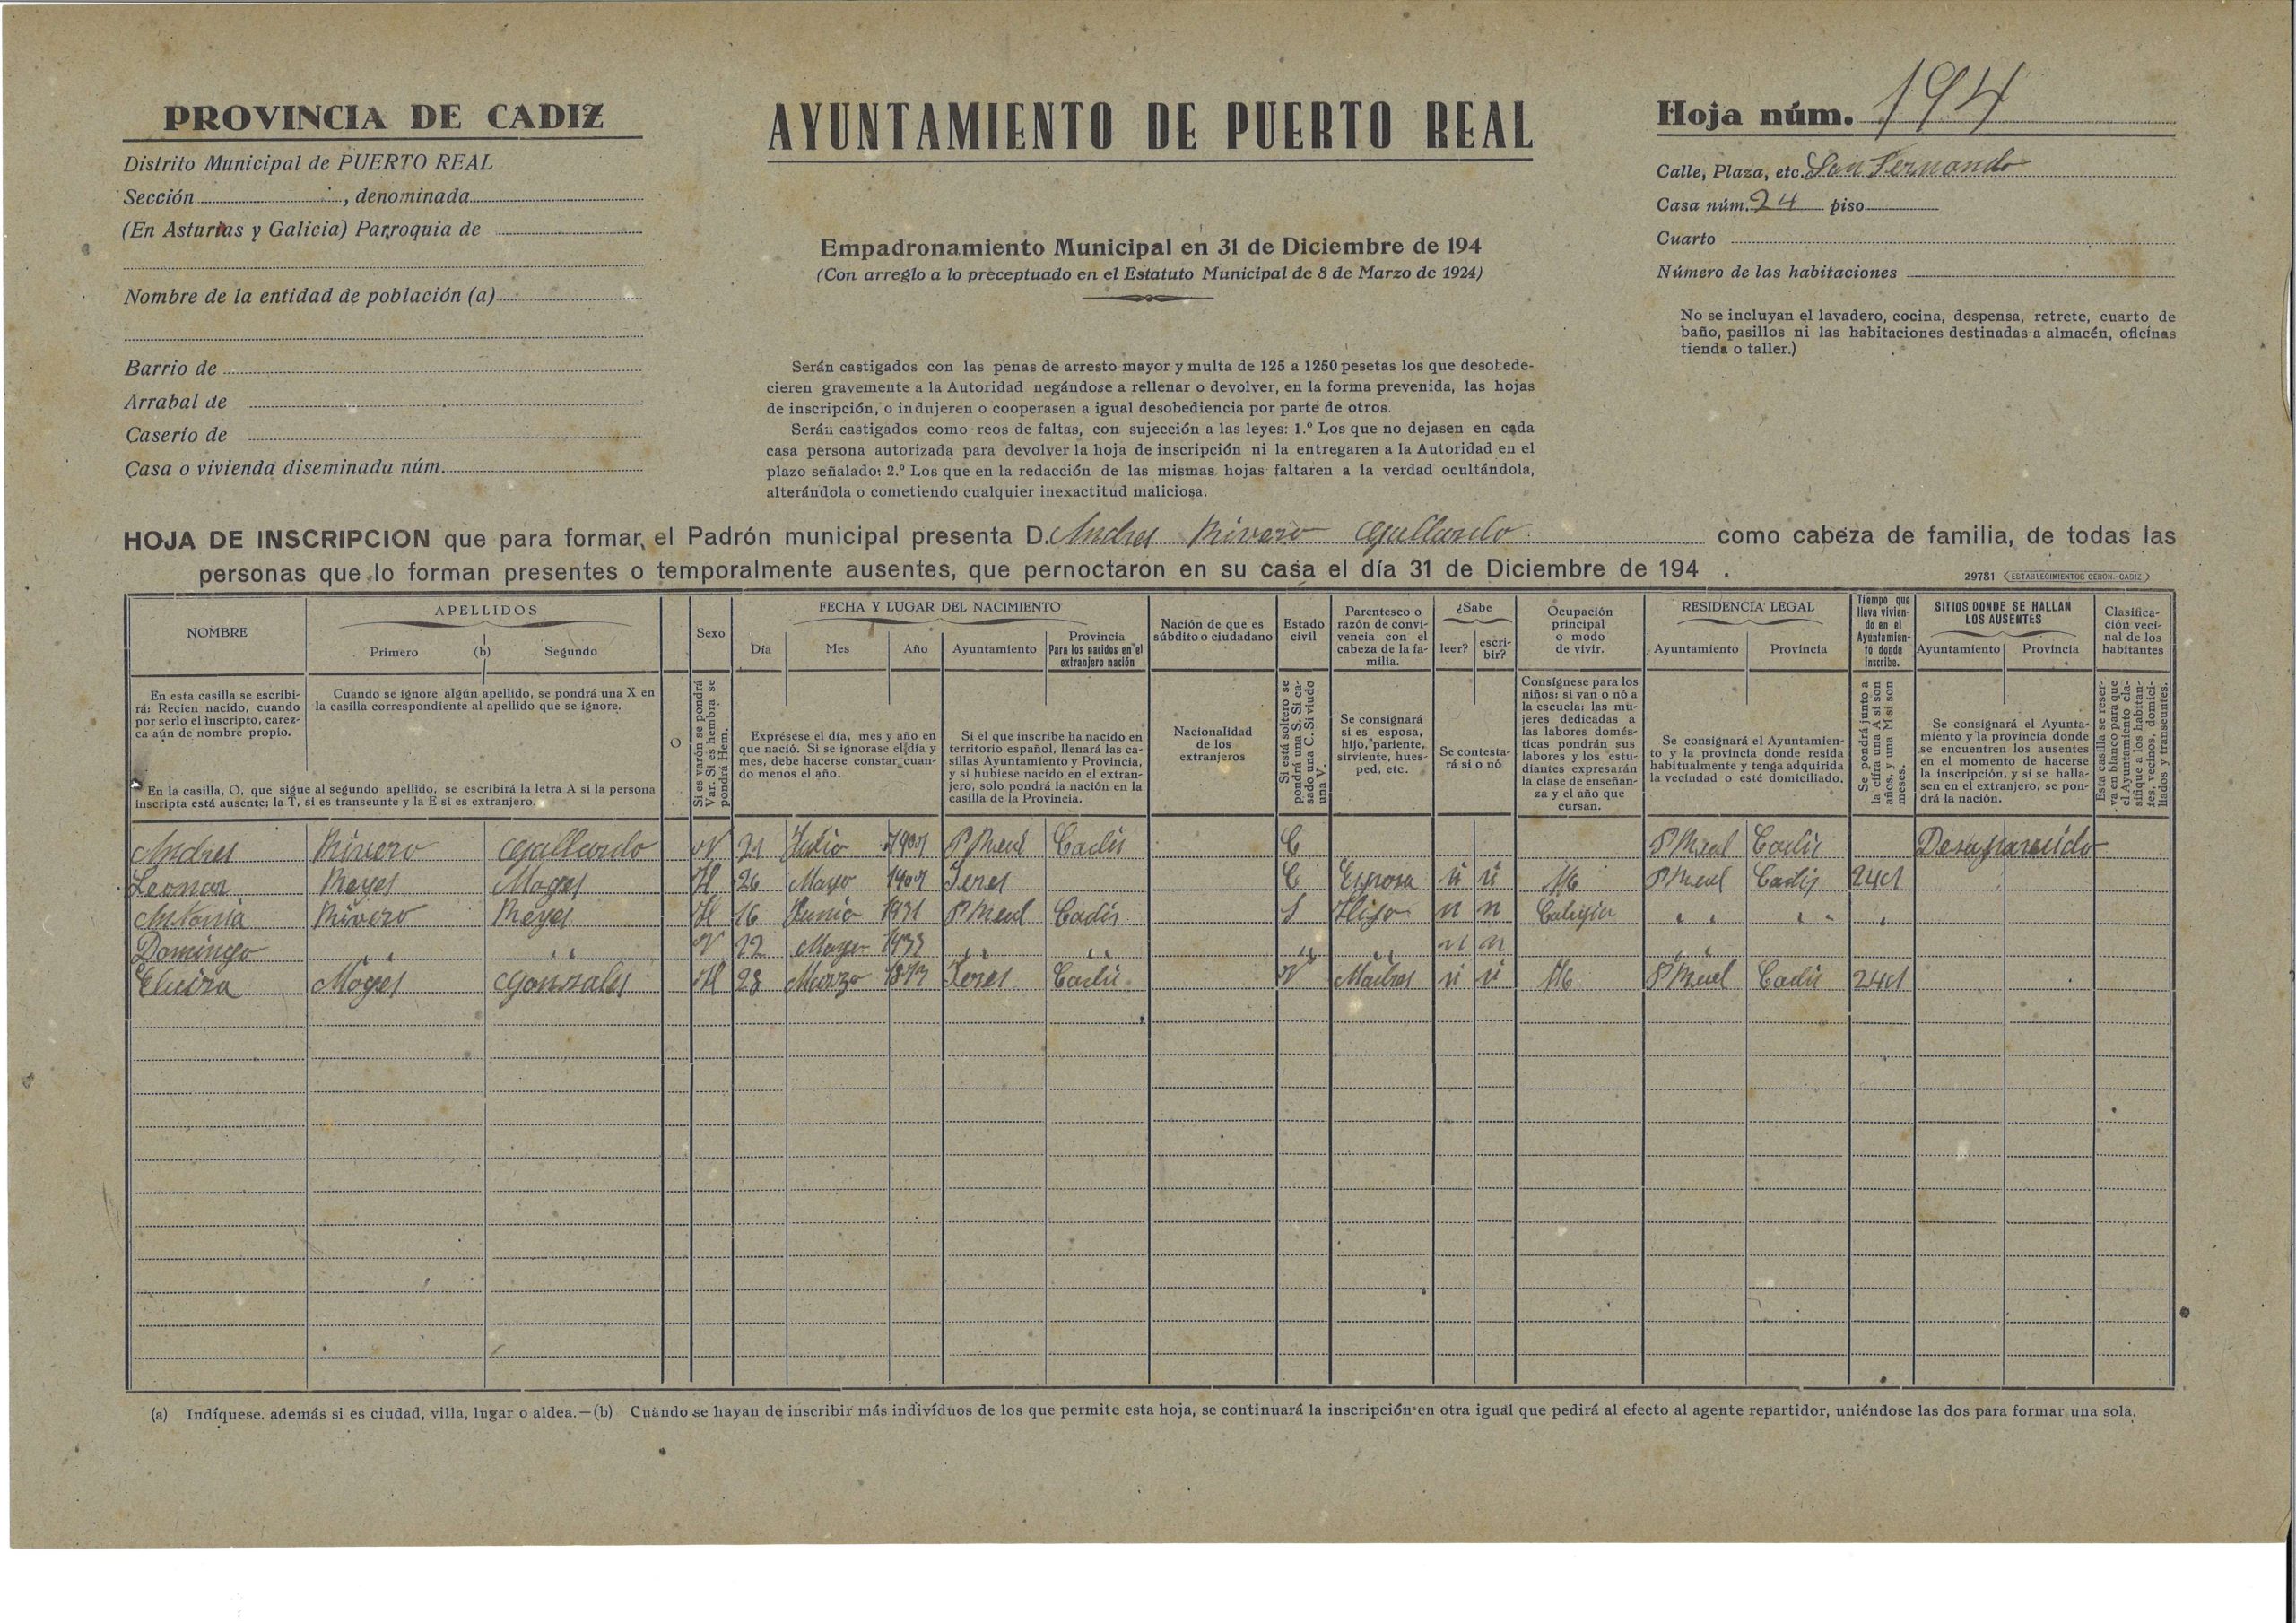 PROVINCIA DE CADIZ
Distrito Municipal de PUERTO REAL
Sección , denominada
(En Asturias y Galicia) Parroquia de
Nombre de la entidad de población (a)
Barrio de
Arrabal de
Caserío de
Casa o vivienda diseminada núm.
AYUNTAMIENTO DE PUERTO REAL
Empadronamiento Municipal en 31 de Diciembre de 194
(Con arreglo a lo preceptuado en el Estatuto Municipal de 8 de Marzo de 1924)
Serán castigados con las penas de arresto mayor y multa de 125 a 1250 pesetas los que desobede-
cieren gravemente a la Autoridad negándose a rellenar o devolver, en la forma prevenida, las hojas
de inscripción, o indujeren o cooperasen a igual desobediencia por parte de otros.
Serán castigados como reos de faltas, con sujección a las leyes: 1.º Los que no dejasen en cada
casa persona autorizada para devolver la hoja de inscripción ni la entregaren a la Autoridad en el
plazo señalado: 2.º Los que en la redacción de las mismas hojas faltaren a la verdad ocultándola,
alterándola o cometiendo cualquier inexactitud maliciosa.
Hoja núm. 194
Calle, Plaza, etc. San Fernando
Casa núm. 24 piso
Cuarto
Número de las habitaciones
No se incluyan el lavadero, cocina, despensa, retrete, cuarto de
baño, pasillos ni las habitaciones destinadas a almacén, oficinas
tienda o taller.)
HOJA DE INSCRIPCION que para formar, el Padrón municipal presenta D. Andres Rivero Gallardo como cabeza de familia, de todas las
personas que lo forman presentes o temporalmente ausentes, que pernoctaron en su casa el día 31 de Diciembre de 194 .
29781 (ESTABLECIMIENTOS CERON.-CADIZ)
NOMBRE
APELLIDOS
Primero (b) Segundo
O
Sexo
FECHA Y LUGAR DEL NACIMIENTO
Día Mes Año Ayuntamiento
Provincia
Para los nacidos en el
extranjero nación
Nación de que es
súbdito o ciudadano
Estado
civil
Parentesco o
razón de convi-
vencia con el
cabeza de la fa-
milia.
¿Sabe
leer? escri-
bir?
Ocupación
principal
o modo
de vivir.
RESIDENCIA LEGAL
Ayuntamiento Provincia
Tiempo que
lleva vivien-
do en el
Ayuntamien-
to donde
inscribe.
SITIOS DONDE SE HALLAN
LOS AUSENTES
Ayuntamiento Provincia
Clasifica-
ción veci-
nal de los
habitantes
En esta casilla se escribi-
rá: Recien nacido, cuando
por serlo el inscripto, carez-
ca aún de nombre propio.
Cuando se ignore algún apellido, se pondrá una X en
la casilla correspondiente al apellido que se ignore.
En la casilla, O, que sigue al segundo apellido, se escribirá la letra A si la persona
inscripta está ausente; la T, si es transeunte y la E si es extranjero.
Si es varón se pondrá
Var. Si es hembra se
pondrá Hem.
Exprésese el día, mes y año en
que nació. Si se ignorase el día y
mes, debe hacerse constar cuan-
do menos el año.
Si el que inscribe ha nacido en
territorio español, llenará las ca-
sillas Ayuntamiento y Provincia,
y si hubiese nacido en el extran-
jero, solo pondrá la nación en la
casilla de la Provincia.
Nacionalidad
de los
extranjeros
Si está soltero se
pondrá una S. Si ca-
sado una C. Si viudo
una V.
Se consignará
si es esposa,
hijo, pariente,
sirviente, hues-
ped, etc.
Se contesta-
rá si o nó
Consígnese para los
niños: si van o nó a
la escuela: las mu-
jeres dedicadas a
las labores domés-
ticas pondrán sus
labores y los estu-
diantes expresarán
la clase de enseñan-
za y el año que
cursan.
Se consignará el Ayuntamien-
to y la provincia donde resida
habitualmente y tenga adquirida
la vecindad o esté domiciliado.
Se pondrá junto a
la cifra una A si son
años, y una M si son
meses.
Se consignará el Ayunta-
miento y la provincia donde
se encuentren los ausentes
en el momento de hacerse
la inscripción, y si se halla-
sen en el extranjero, se pon-
drá la nación.
Esta casilla se reser-
va en blanco para que
el Ayuntamiento cla-
sifique a los habitan-
tes, vecinos, domici-
liados y transeuntes.
Andres Rivero Gallardo V 21 Julio P Real Cadis C P Real Cadis Desaparecido
Leonor Reyes Moges H 26 Mayo Jeres C Esposa si si P Real Cadis 24
Antonia Rivero Reyes H 16 Junio 1931 P Real Cadis S Hija n n Colegia " " " " "
Domingo " " " " V 22 Mayo 1933 " " " " " " " n n " "
Elvira Moges Gonzales H 28 Marzo Jeres Cadis V Madre si si P Real Cadis 24
(a) Indíquese. además si es ciudad, villa, lugar o aldea.—(b) Cuando se hayan de inscribir más indivíduos de los que permite esta hoja, se continuará la inscripción en otra igual que pedirá al efecto al agente repartidor, uniéndose las dos para formar una sola.